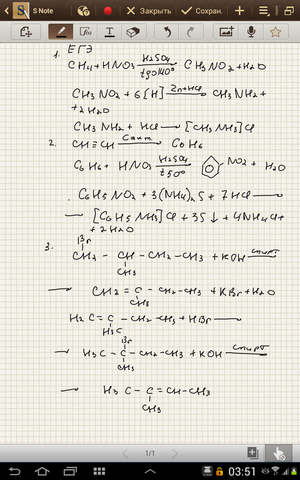 S Note
Закрыть
Сохран.
ЕГЭ
1. CH4 + HNO3 H2SO4 t до 140° CH3NO2 + H2O
CH3NO2 + 6[H] Zn+HCl CH3NH2 +
+ 2H2O
CH3NH2 + HCl → [CH3NH3]Cl
2. CH≡CH Cакт. C6H6
C6H6 + HNO3 H2SO4 t50° NO2 + H2O
C6H5NO2 + 3(NH4)2S + 7HCl →
→ [C6H5NH3]Cl + 3S↓ + 6NH4Cl +
+ 2H2O
3. Br
CH2 – CH – CH2 – CH3 + KOH спирт
CH3
→ CH2 = C – CH2 – CH3 + KBr + H2O
CH3
H2C = C – CH2 – CH3 + HBr →
H3C
Br
→ H3C – C – CH2 – CH3 + KOH спирт
CH3
→ H3C – C = CH – CH3
CH3
1/1
03:51